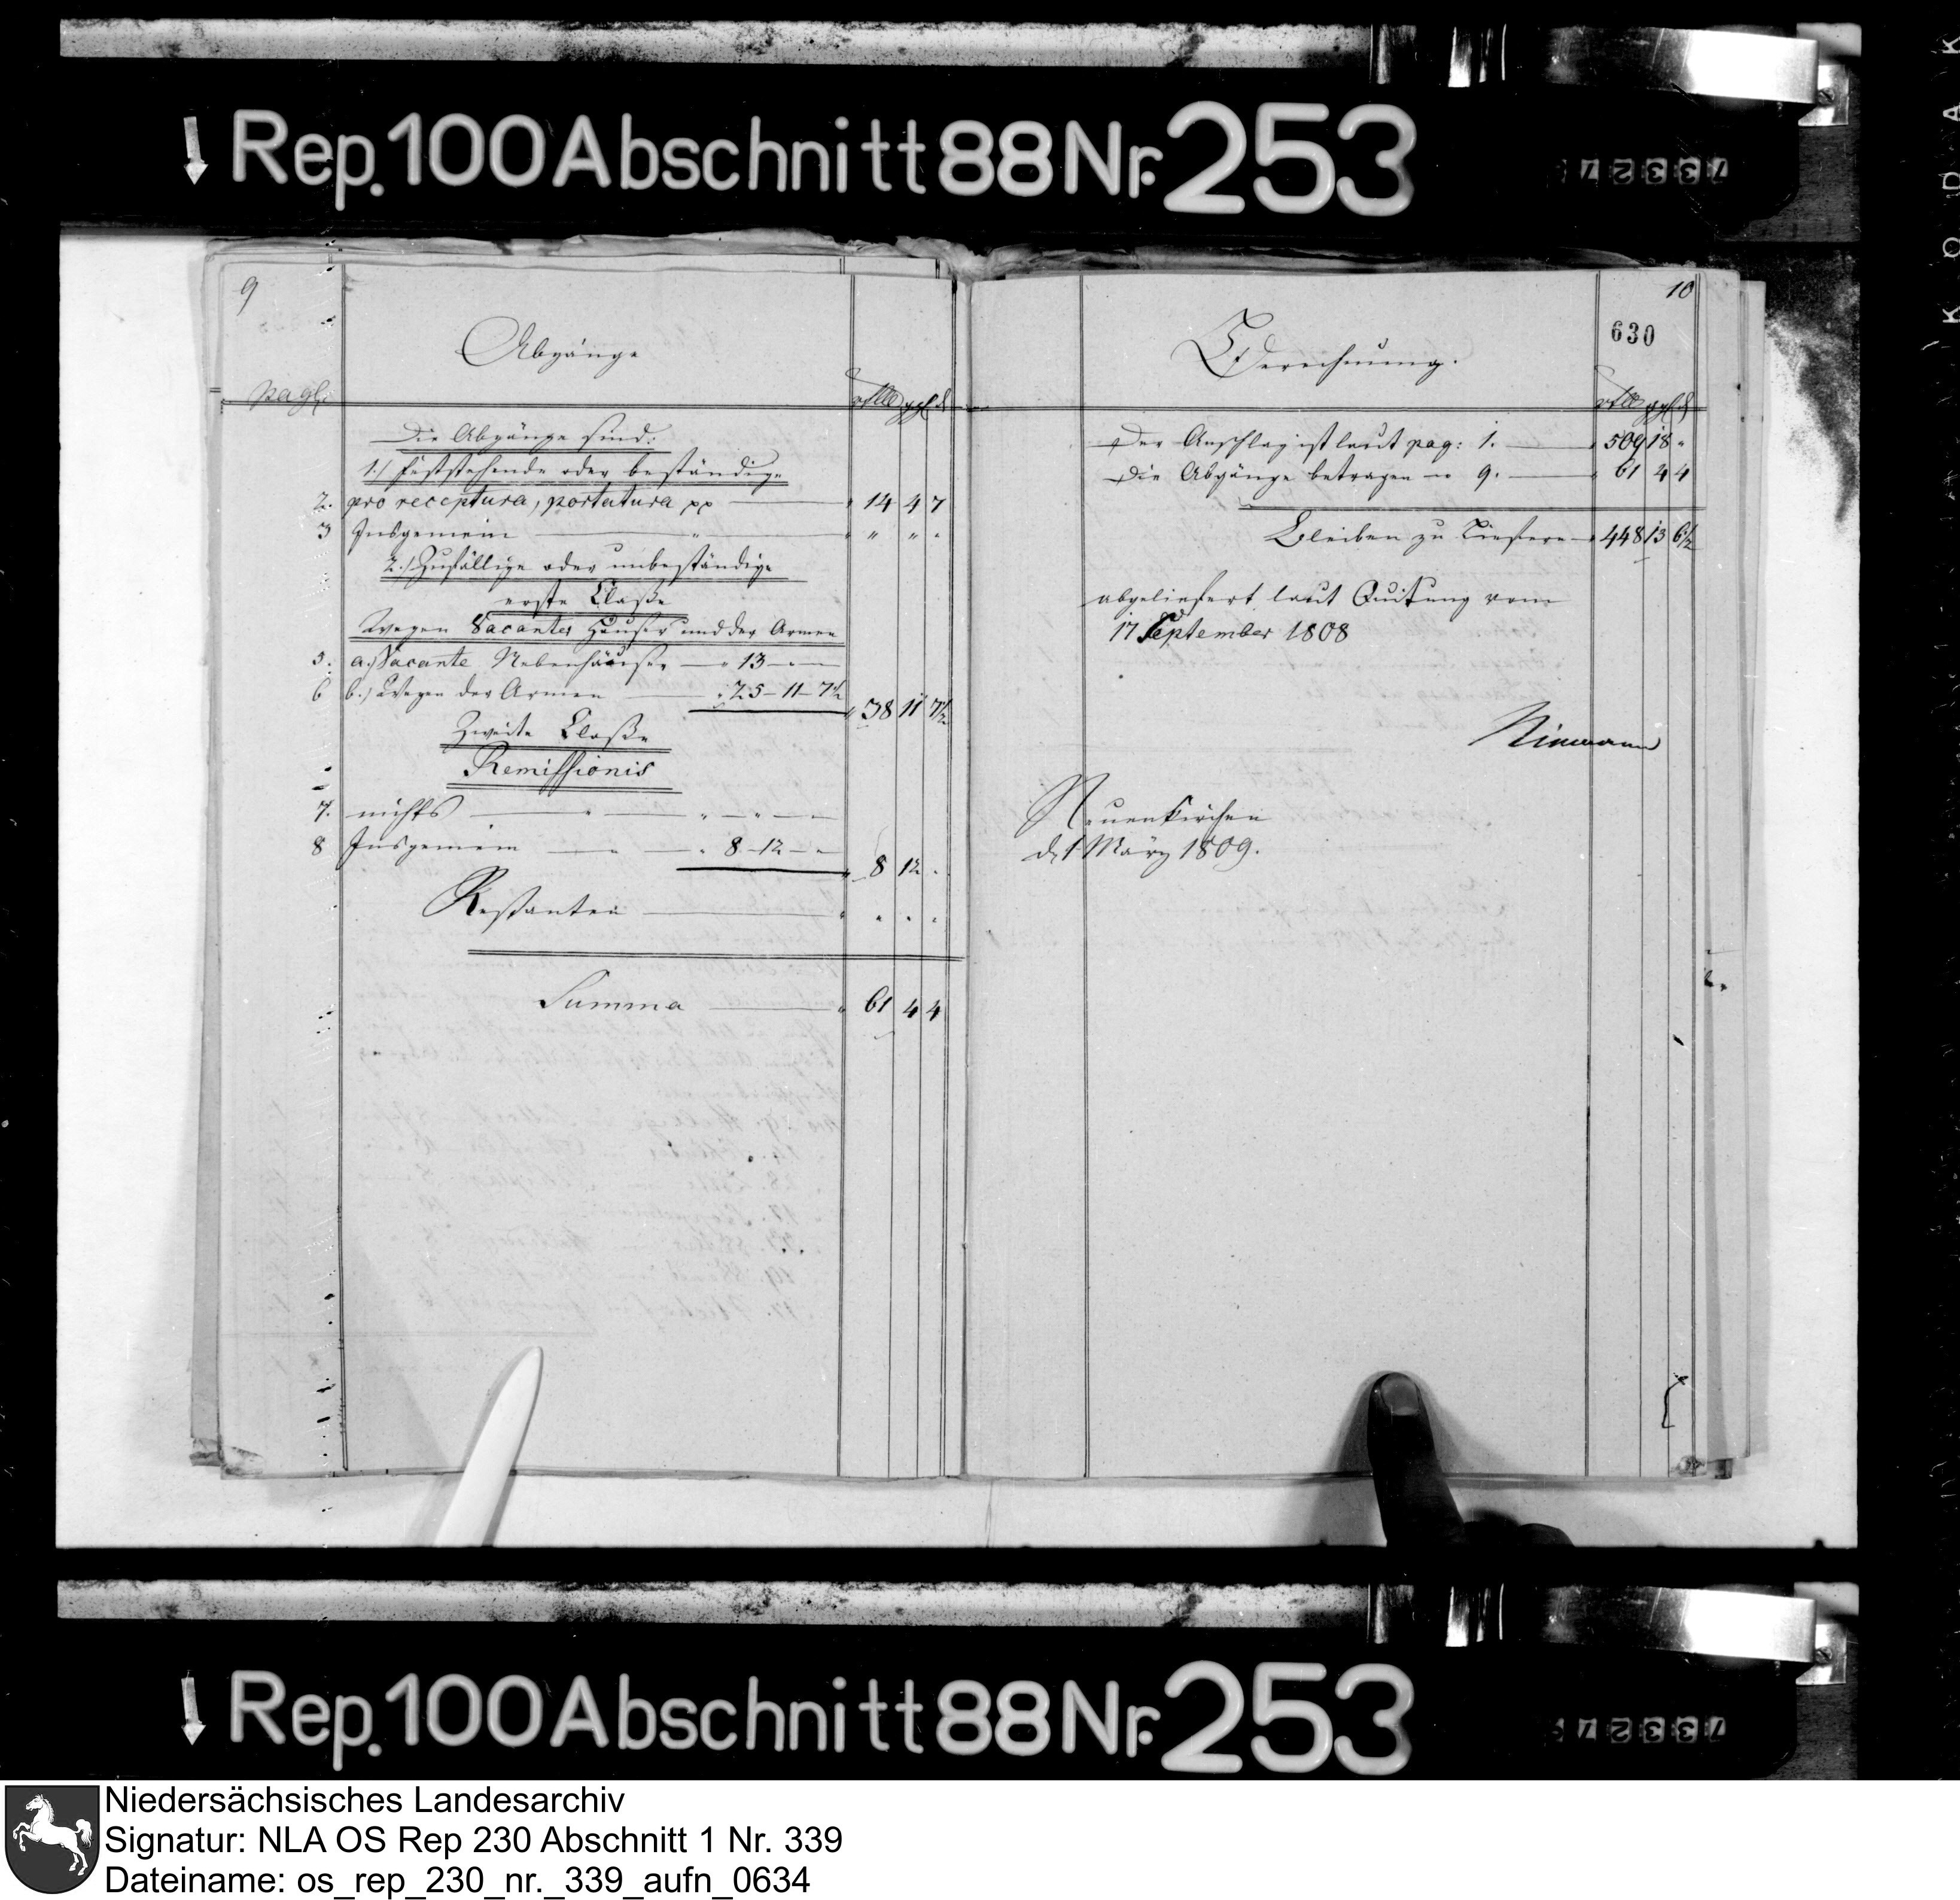 Rep. 100 Abschnitt 88 Nr. 253
73327
KODAK
9
Abgänge
pag:
rthlr ggl d
Die Abgänge sind:
1.) feststehende oder beständige
2. pro receptura, portatura pp — 14 4 7
3 Insgemein — " " "
2.) Zufällige oder unbeständige
erste Claße
Wegen Vacanter Häuser und der Armen
5. a.) Vacante Nebenhäuser — 13 - -
6 b.) Wegen der Armen — 25 - 11 - 7½
38 11 7½
Zweite Claße
Remissionis
7. nichts — " — " — " —
8 Insgemein — " — 8 - 12 - "
8 12 "
Restanten — " " "
Summa — 61 4 4
10
630
Berechnung.
rthlr ggl d
Der Anschlag ist laut pag: 1. — 509 18 "
Die Abgänge betragen " 9. — 61 4 4
Bleiben zu liefern — 448 13 6½
abgeliefert laut Quitung vom
17 September 1808
Niemann
Neuenkirchen
d. 1 März 1809.
Rep. 100 Abschnitt 88 Nr. 253
73327
Niedersächsisches Landesarchiv
Signatur: NLA OS Rep 230 Abschnitt 1 Nr. 339
Dateiname: os_rep_230_nr._339_aufn_0634